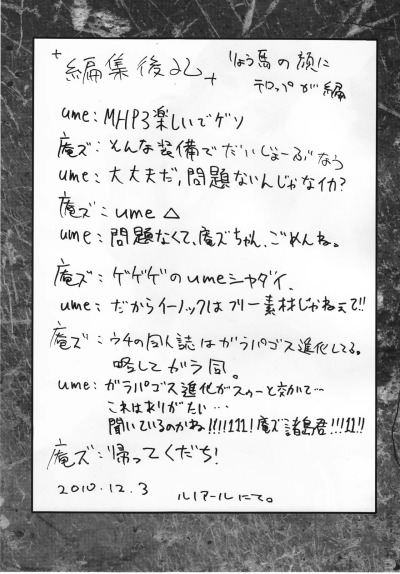 編集後記
りょう馬の顔に
テロップが編
ume: MHP3楽しいでゲソ
庵ズ: そんな装備でだいじょーぶなう
ume: 大丈夫だ, 問題ないんじゃなイカ?
庵ズ: ume △
ume: 問題なくて, 庵ズちゃん、ごめんね。
庵ズ: ゲゲゲのumeシャダイ、
ume: だからイーノックはフリー素材じゃねえて!!
庵ズ: ウチの同人誌はガラパゴス進化してる。
略してガラ同。
ume: ガラパゴス進化がスゥーと効いて…
これはありがたい…
聞いているのかね!!!!111!庵ズ諸島君!!!11!!
庵ズ: 帰ってくだち!
2010.12.3
ルノアールにて。